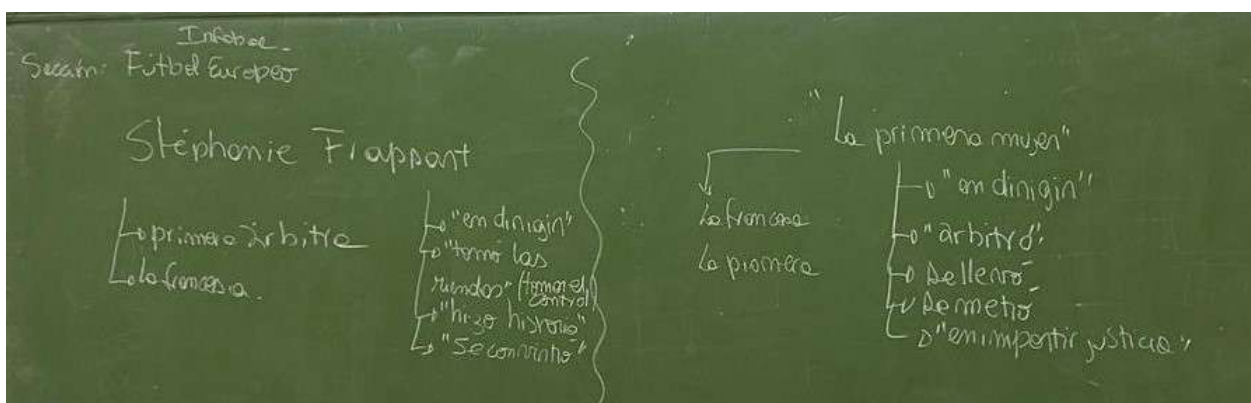 Infobae.
Sección: Fútbol Europeo
Stéphanie Frappart
primera árbitra
la francesa.
"en dirigir"
"tomó las
riendas" (tomar el
control)
"hizo historia"
"Se convirtió"
"La primera mujer"
la francesa
La pionera
"en dirigir"
"arbitró"
Se llevó
Se metió
"en impartir justicia"